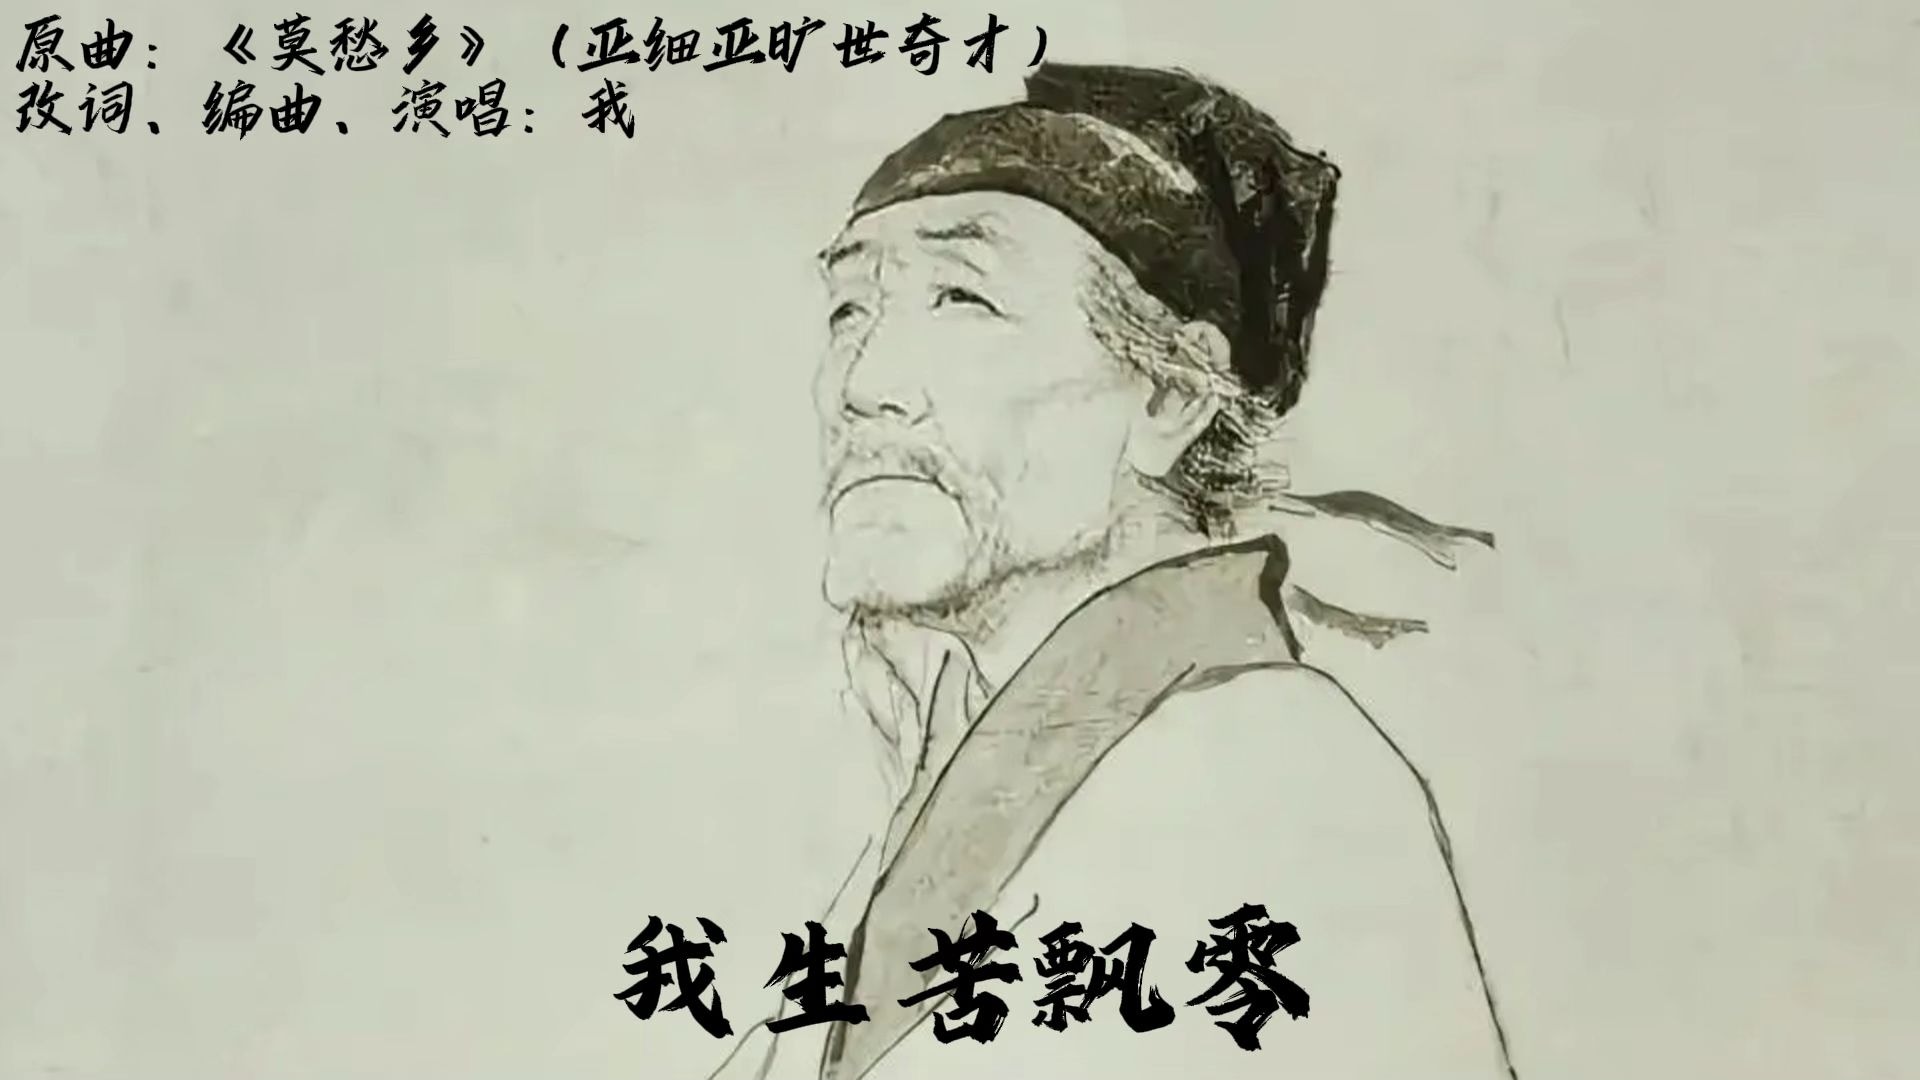 原曲：《莫愁乡》（亚细亚旷世奇才）
改词、编曲、演唱：我
我生苦飘零